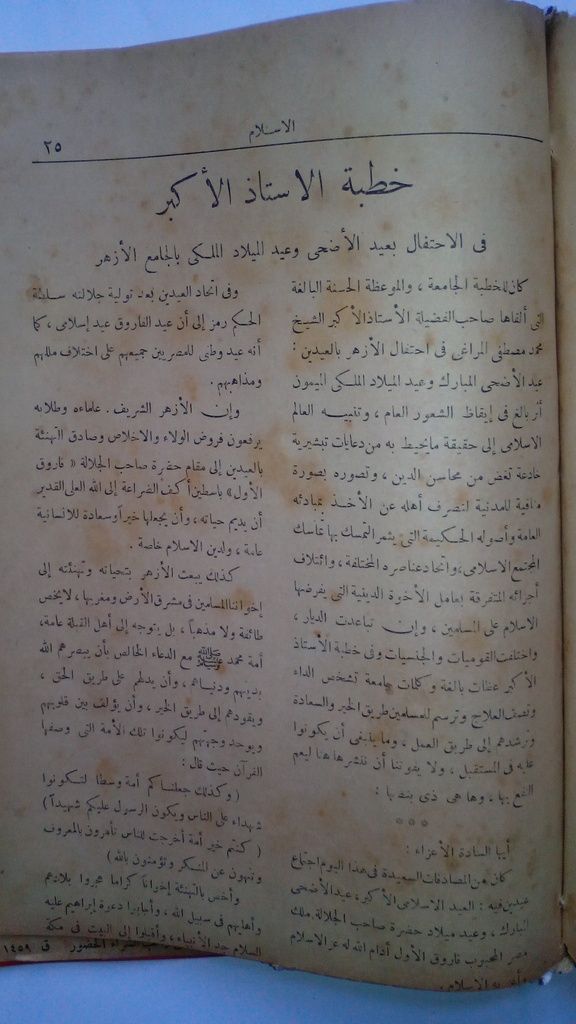 الاسلام
٢٥
خطبة الاستاذ الأكبر
فى الاحتفال بعيد الأضحى وعيد الميلاد الملكى بالجامع الأزهر
كان للخطبة الجامعة ، والموعظة الحسنة البالغة
التى ألقاها صاحب الفضيلة الأستاذ الأكبر الشيخ
محمد مصطفى المراغى فى احتفال الأزهر بالعيدين :
عيد الأضحى المبارك وعيد الميلاد الملكى الميمون
أثر بالغ فى إيقاظ الشعور العام ، وتنبيه العالم
الاسلامى إلى حقيقة مايحيط به من دعايات تبشيرية
خادعة تغض من محاسن الدين ، وتصوره بصورة
منافية للمدنية لتصرف أهله عن الأخذ بمبادئه
العامة وأصوله الحكيمة التى يثمر التمسك بها تماسك
المجتمع الاسلامى، واتحاد عناصره المختلفة ، وائتلاف
أجزائه المتفرقة بعامل الأخوة الدينية التى يفرضها
الاسلام على المسلمين ، وإن تباعدت الديار ،
واختلفت القوميات والجنسيات وفى خطبة الأستاذ
الأكبر عظات بالغة وكلمات جامعة تشخص الداء
وتصف العلاج وترسم للمسلمين طريق الخير والسعادة
وترشدهم إلى طريق العمل ، وما ينبغى أن يكونوا
عليه فى المستقبل ، ولا يفوتنا أن ننشرها هنا ليعم
النفع بها ، وها هى ذى بنصها :
* * *
أيها السادة الأعزاء :
كان من المصادفات السعيدة فى هذا اليوم اجتماع
عيدين فيه : العيد الاسلامى الأكبر، عيد الأضحى
المبارك ، وعيد ميلاد حضرة صاحب الجلالة ملك
مصر المحبوب فاروق الأول أدام الله له عز الاسلام
وأعز به الاسلام .
وفى اتحاد العيدين بعد تولية جلالته سلطة
الحكم رمز إلى أن عيد الفاروق عيد إسلامى ، كما
أنه عيد وطنى للمصريين جميعهم على اختلاف مللهم
ومذاهبهم .
وإن الأزهر الشريف . علماءه وطلابه
يرفعون فروض الولاء والاخلاص وصادق التهنئة
بالعيدين إلى مقام حضرة صاحب الجلالة « فاروق
الأول» باسطين أكف الضراعة إلى الله العلى القدير
أن يديم حياته ، وأن يجعلها خيراً وسعادة للانسانية
عامة ، ولدين الاسلام خاصة .
كذلك يبعث الأزهر بتحياته وتهنئته إلى
إخواننا المسلمين فى مشرق الأرض ومغربها ، لا يخص
طائفة ولا مذهباً ، بل يتوجه إلى أهل القبلة عامة،
أمة محمد ﷺ مع الدعاء الخالص بأن يبصرهم الله
بدينهم ودنياهم ، وأن يدلهم على طريق الحق ،
ويقودهم إلى طريق الخير ، وأن يؤلف بين قلوبهم
ويوحد وجهتهم ليكونوا تلك الأمة التى وصفها
القرآن حيث قال :
( وكذلك جعلناكم أمة وسطا لتكونوا
شهداء على الناس ويكون الرسول عليكم شهيداً )
( كنتم خير أمة أخرجت للناس تأمرون بالمعروف
وتنهون عن المنكر وتؤمنون بالله )
وأخص بالتهنئة إخواناً كراما هجروا بلادهم
وأهليهم فى سبيل الله ، وأجابوا دعوة إبراهيم عليه
السلام جد الأنبياء ، وأقبلوا إلى البيت فى مكة
الحضور ق ١٤٥٩